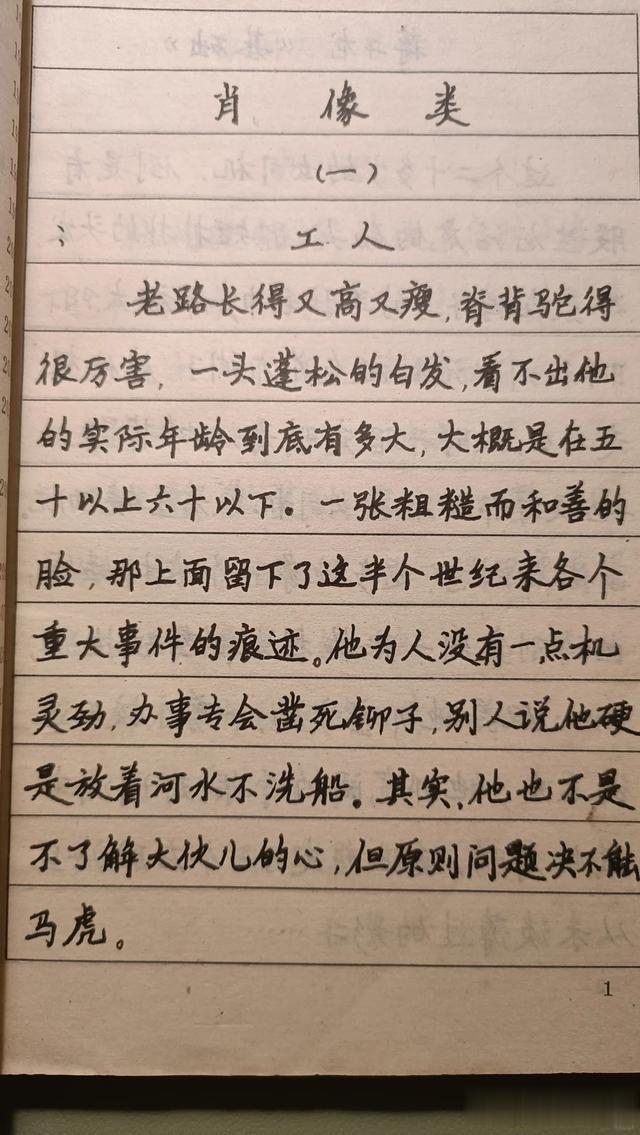 肖 像 类
(一)
工 人
老路长得又高又瘦,脊背驼得
很厉害,一头蓬松的白发,看不出他
的实际年龄到底有多大,大概是在五
十以上六十以下。一张粗糙而和善的
脸,那上面留下了这半个世纪来各个
重大事件的痕迹。他为人没有一点机
灵劲,办事专会凿死铆子,别人说他硬
是放着河水不洗船。其实,他也不是
不了解大伙儿的心,但原则问题决不能
马虎。
1